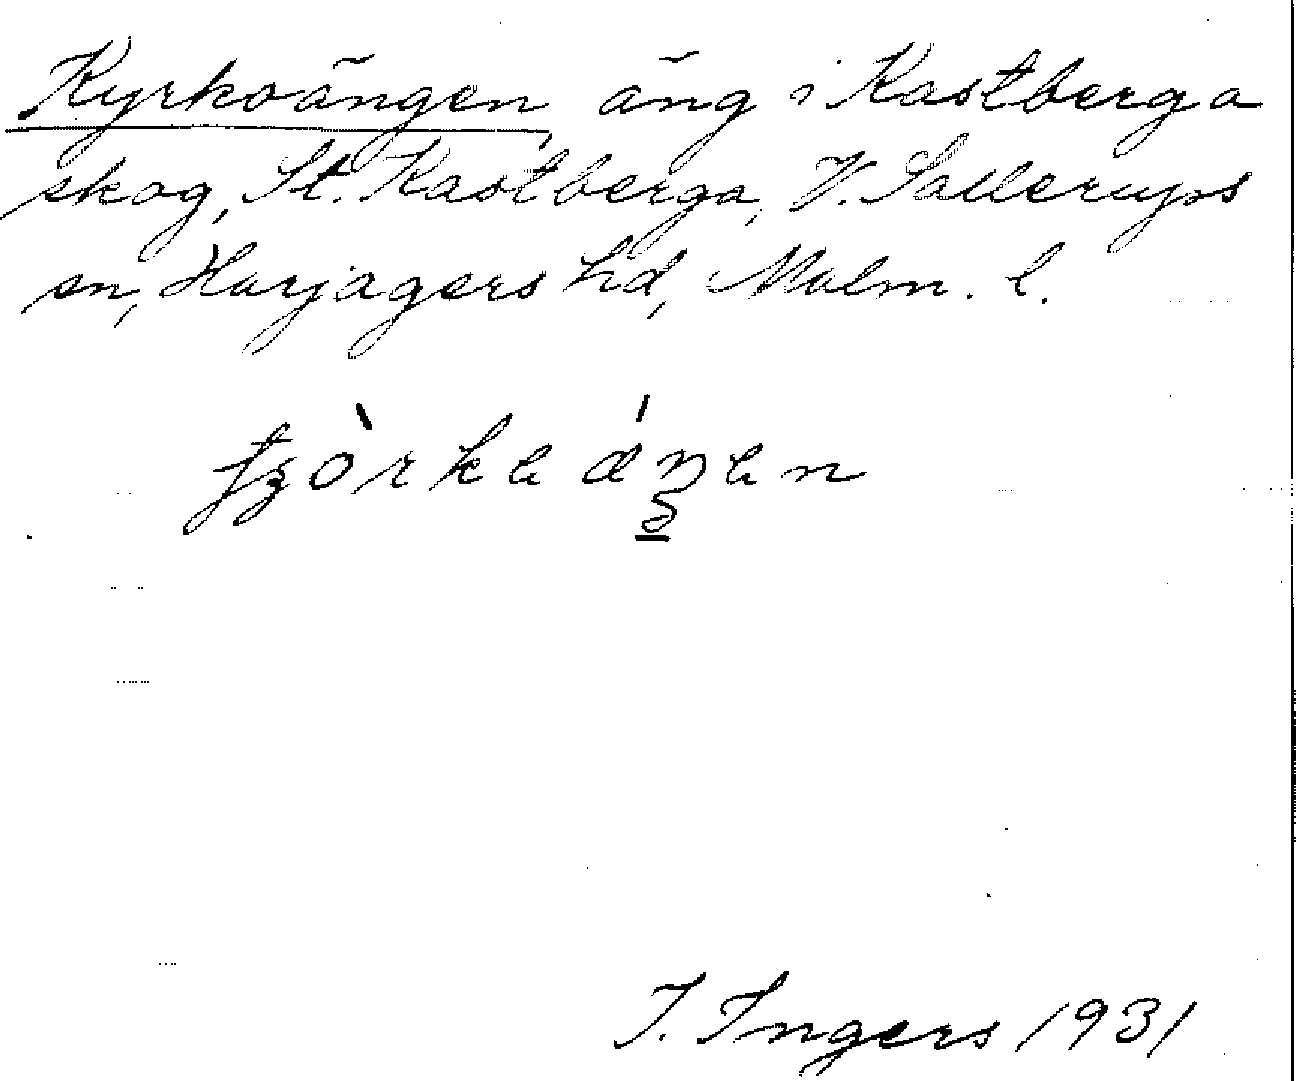 Kyrkoängen, äng i Kastberga
skog, St. Kastberga, V. Sallerups
sn, Harjagers hd, Malm. l.
I. Ingers 1931